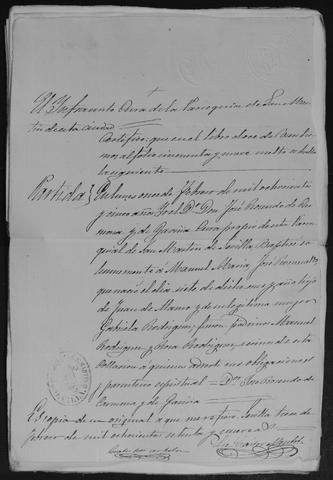 El Infrascrito Cura de la Parroquia de San Mar-
tin de esta ciudad
Certifico: que en el libro doce de Bautis-
mos al folio cincuenta y nueve vuelto se halla
la siguiente
Partida} En lunes once de Febrero de mil ochocientos
y cinco años Yo el Dr. Don José Bernardo de
y de Gaviria Cura propio de esta Parro-
quial de San Martin de Sevilla Bauticé so-
lemnemente á Manuel Maria, José
que nació el dia siete de dicho mes y año hijo
de Juan de Alamo y de su legitima mujer
Gabriela Rodriguez, fueron Padrinos Manuel
Rodriguez y Rosa Rodriguez vecinos de esta
Collacion á quienes advertí sus obligaciones
y parentesco espiritual = Dr. Don Bernardo de
y de Gaviria
Es copia de su original a que me refiero. Sevilla tres de
Febrero de mil ochocientos setenta y nueve